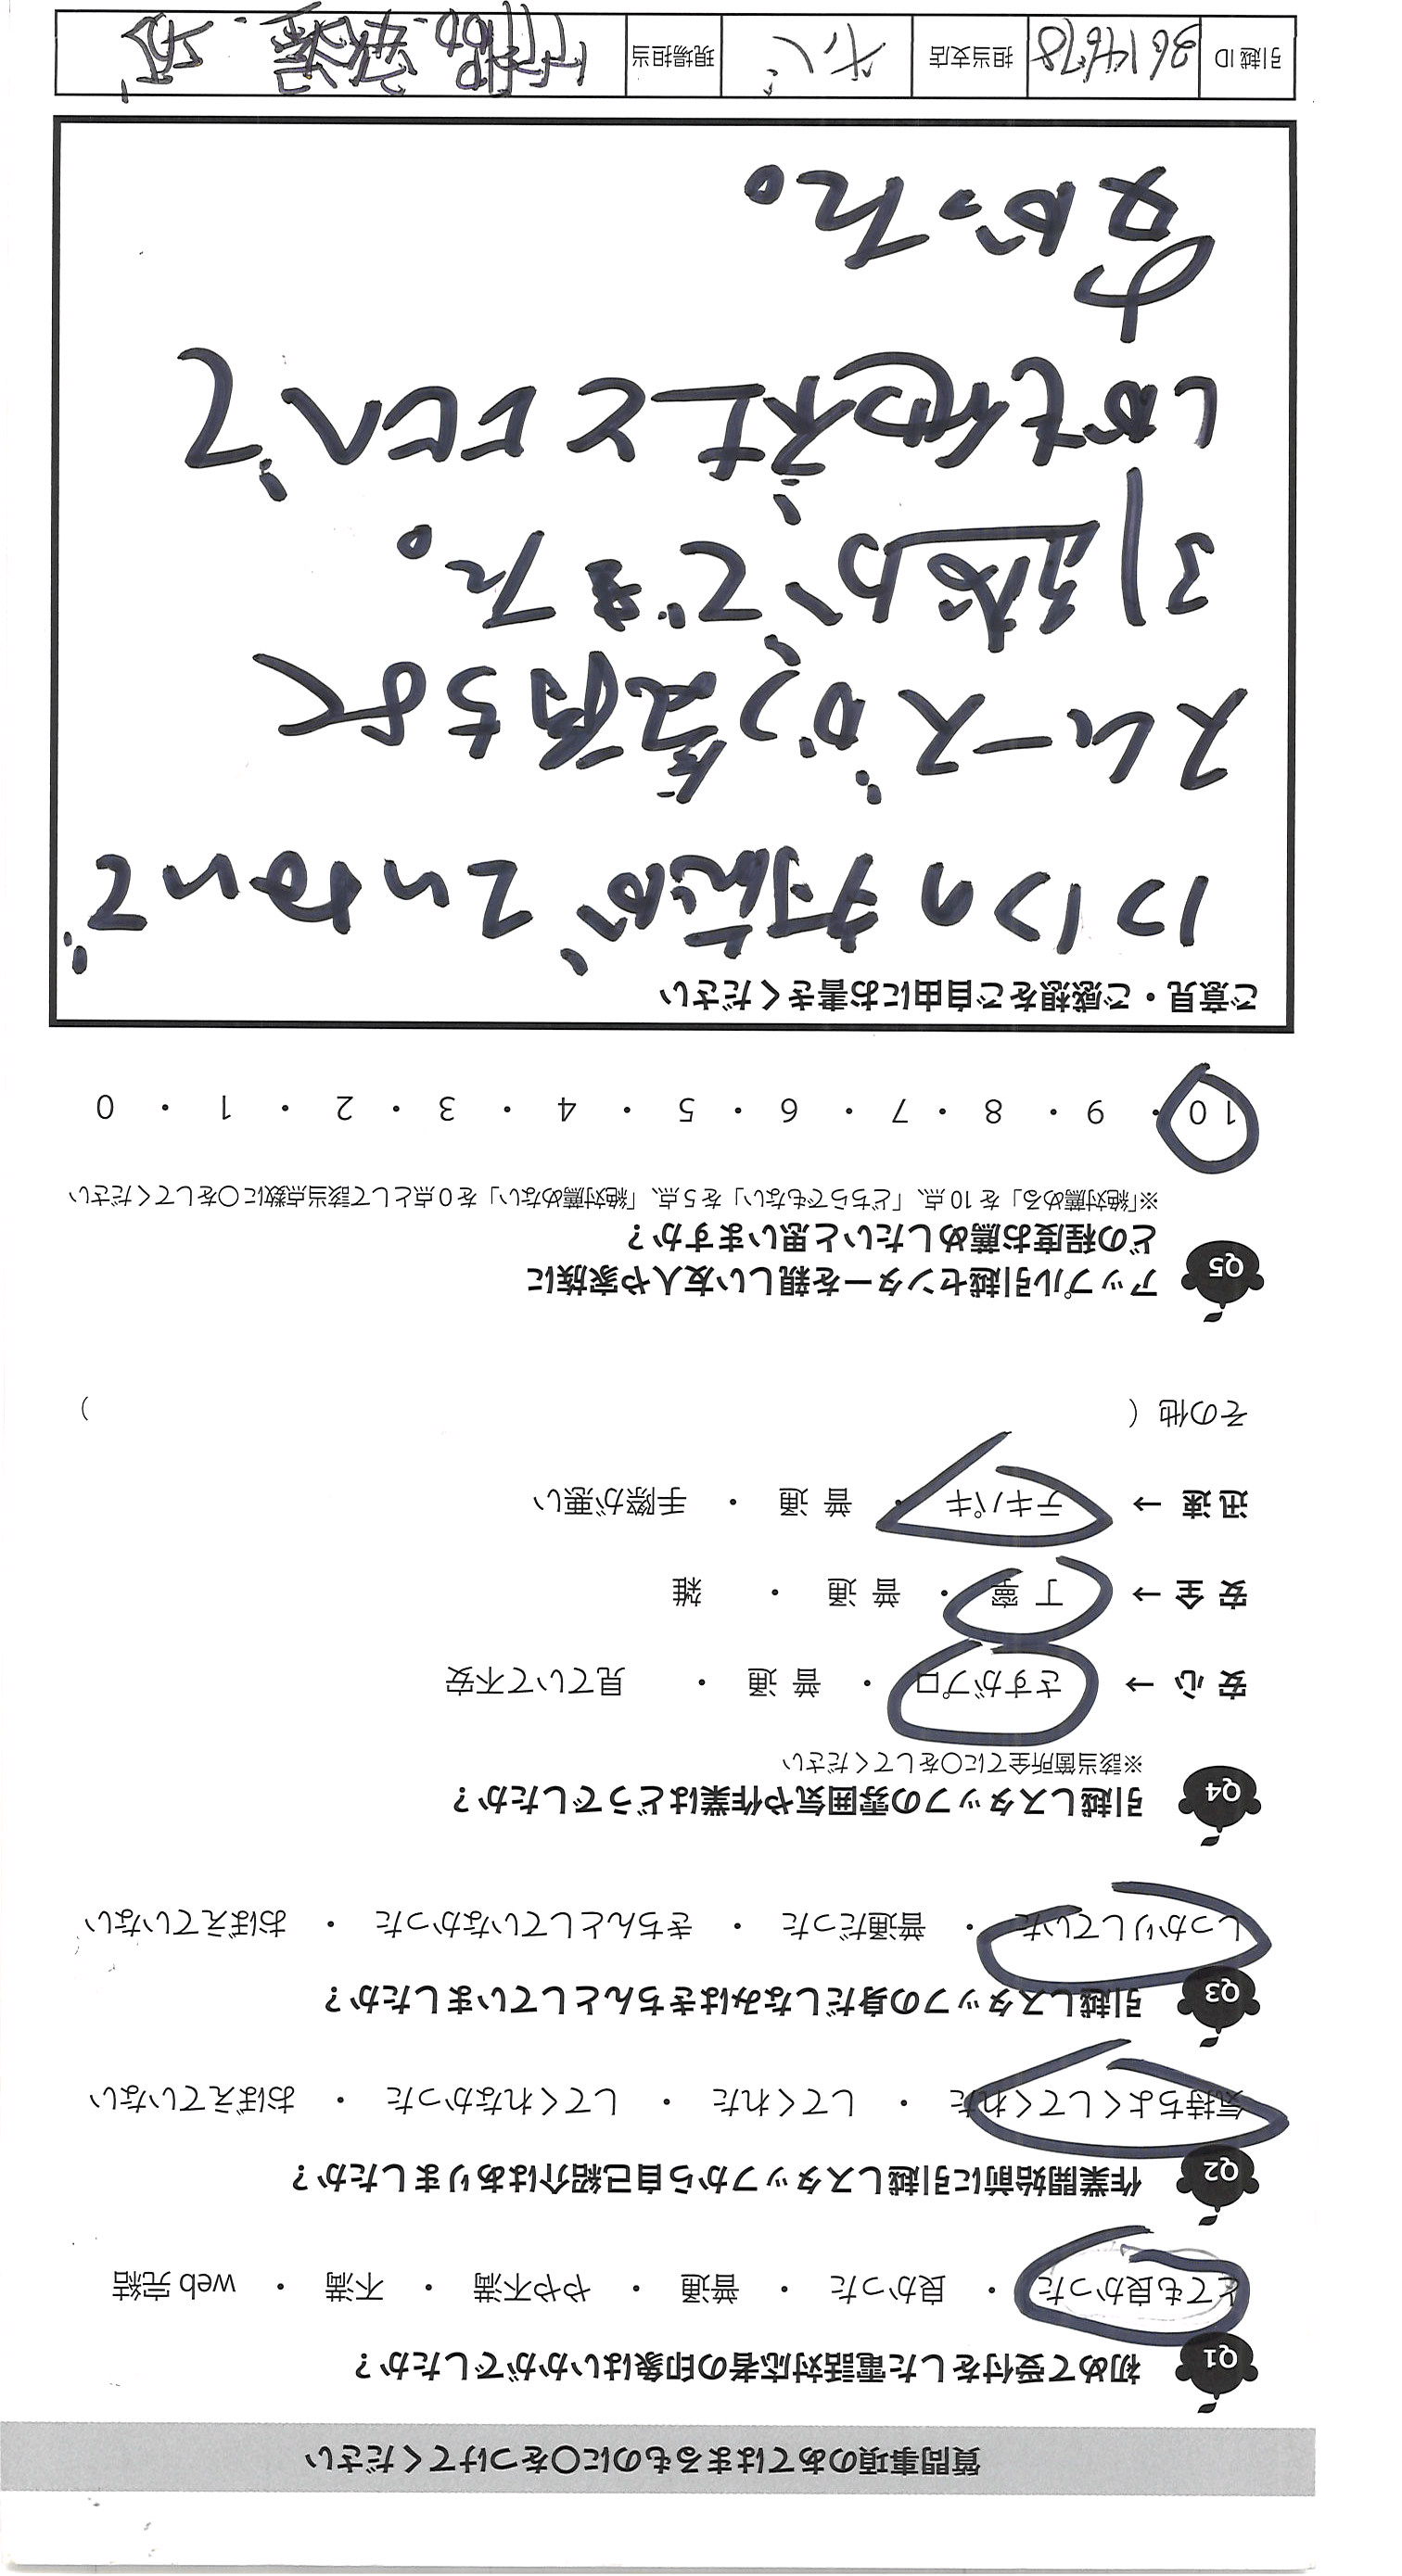 質問事項のあてはまるものに〇をつけてください
Q1 初めて受付をした電話対応者の印象はいかがでしたか？
とても良かった ・ 良かった ・ 普通 ・ やや不満 ・ 不満 ・ web 完結
Q2 作業開始前に引越しスタッフから自己紹介はありましたか？
気持ちよくしてくれた ・ してくれた ・ してくれなかった ・ おぼえていない
Q3 引越しスタッフの身だしなみはきちんとしていましたか？
しっかりしていた ・ 普通だった ・ きちんとしていなかった ・ おぼえていない
Q4 引越しスタッフの雰囲気や作業はどうでしたか？
※該当箇所全てに〇をしてください
安 心 → さすがプロ ・ 普 通 ・ 見ていて不安
安 全 → 丁 寧 ・ 普 通 ・ 雑
迅 速 → テキパキ ・ 普 通 ・ 手際が悪い
その他（ ）
Q5 アップル引越センターを親しい友人や家族に
どの程度お薦めしたいと思いますか？
※「絶対薦める」を 10 点、「どちらでもない」を 5 点、「絶対薦めない」を 0 点として該当点数に〇をしてください
10 ・ 9 ・ 8 ・ 7 ・ 6 ・ 5 ・ 4 ・ 3 ・ 2 ・ 1 ・ 0
ご意見・ご感想をご自由にお書きください
1つ1つの対応が ていねいで
スムーズかつ気持ちよく
引越ができました。
しかも他社とヒヒべて
安かった。
引越 ID 3614678 担当支店 現場担当